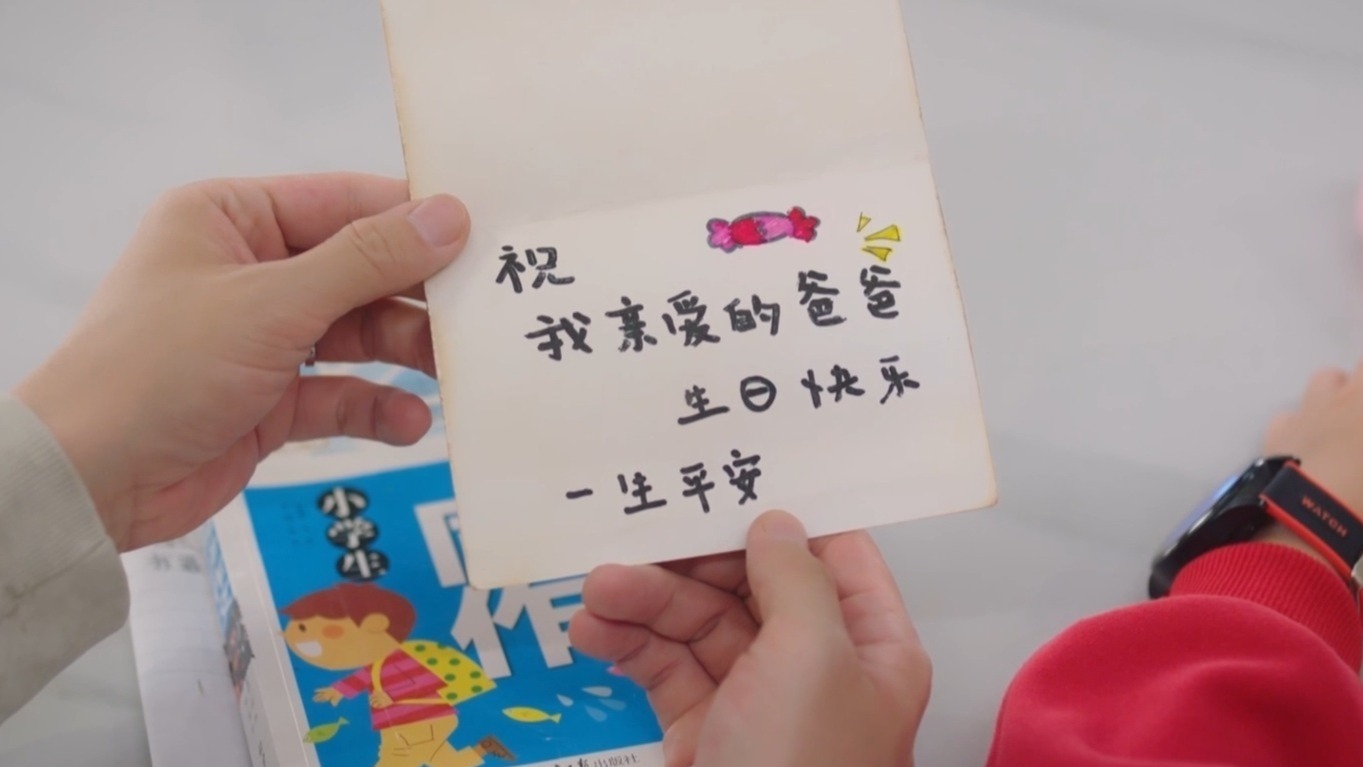 祝
我亲爱的爸爸
生日快乐
一生平安
小学生
作
出版社
WATCH